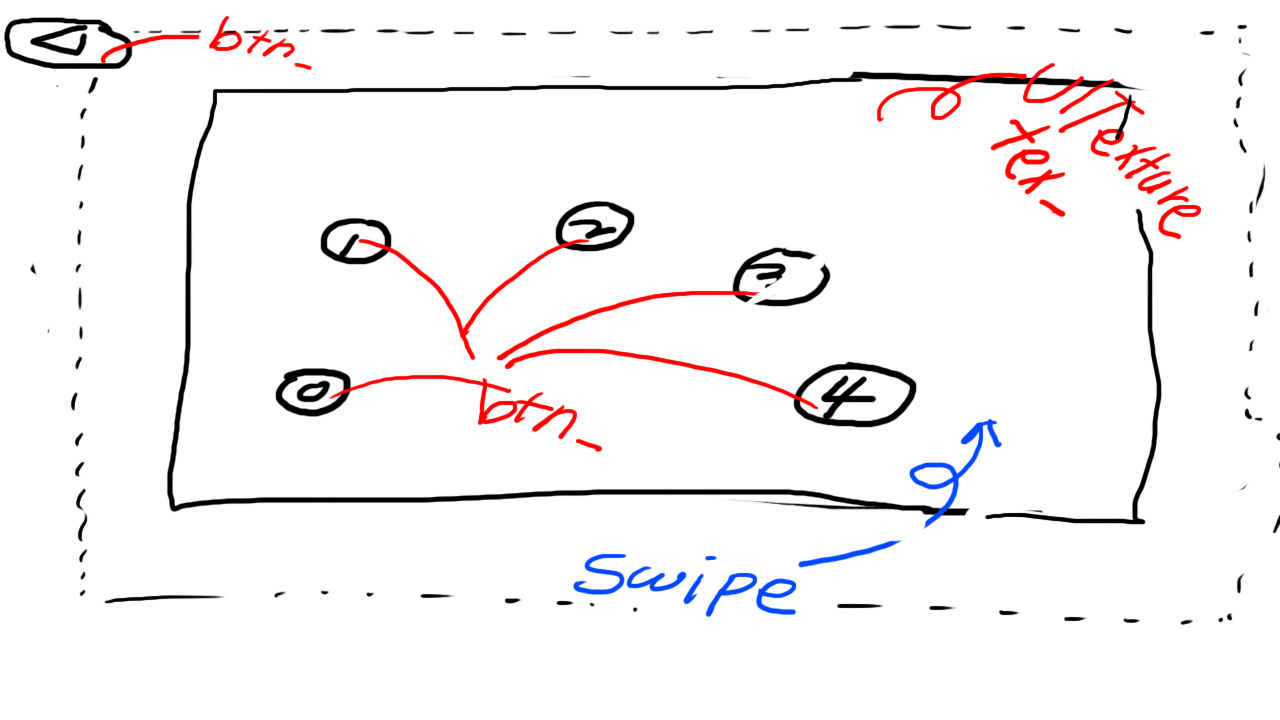 btn_
UITexture
tex_
1
2
3
0
4
btn_
swipe